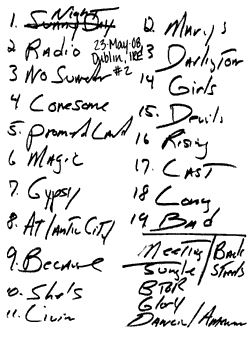 Night
1. Sunny Day
2 Radio
23-May-08
Dublin, IRE
#2
3 No Surren
4 Lonesome
5. Promised Land
6 Magic
7. Gypsy
8. Atlantic City
9. Because
10. She's
11. Livin
12. Mary's
13 Darlington
14 Girls
15. Devils
16 Rising
17. LAST
18 Long
19. Bad
Meeting / Back Streets
Jungle
BTOR
Glory
Dancin / American